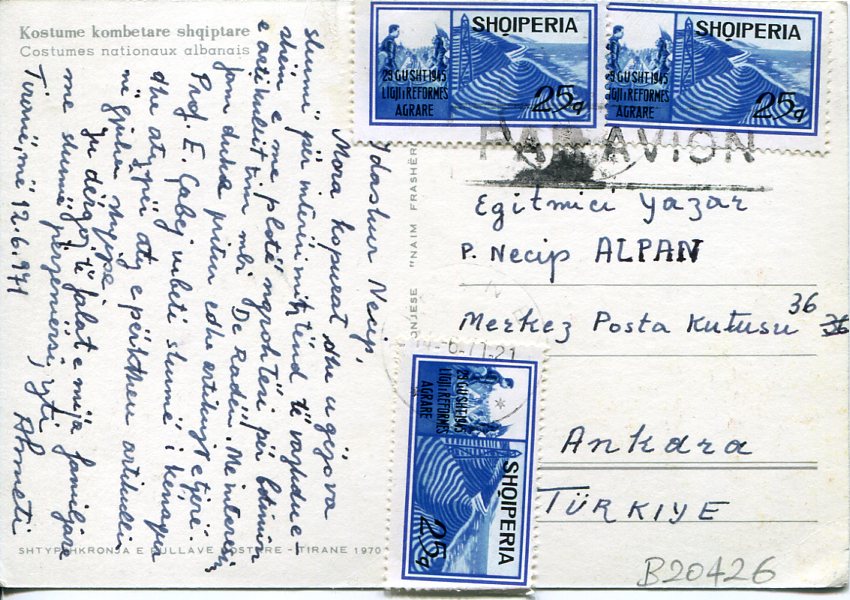 Kostume kombetare shqiptare
Costumes nationaux albanais
I dashur Necip,
Mora kopueat dhe u gëzova
shumë për interesimin tënd të vazhdue-
shëm e me plotë ngrohtësi për botimin
e artikullit tim mbi De Radën. Me interesim
jam duke pritur edhe artikujt e tjerë.
Prof. E. Çabej mbeti shumë i kënaqun
dhe aty për aty e përktheu artikullin
në gjuhën shqipe.
Ju dërgoj të falat e mija familjare
me shumë përzemërsi, yti
Tiranë, më 12.6.971 Ahmeti
SHTYPSHKRONJA E PULLAVE POSTARE - TIRANE 1970
"NAIM FRASHËRI
SHQIPERIA
29 GUSHT 1945
LIGJI I REFORMES
AGRARE
25q
SHQIPERIA
29 GUSHT 1945
LIGJI I REFORMES
AGRARE
25q
PAR AVION
Egitmici Yazar
P. Necip ALPAN
Merkez Posta Kutusu 36 36
Ankara
TÜRKIYE
SHQIPERIA
29 GUSHT 1945
LIGJI I REFORMES
AGRARE
25q
B20426